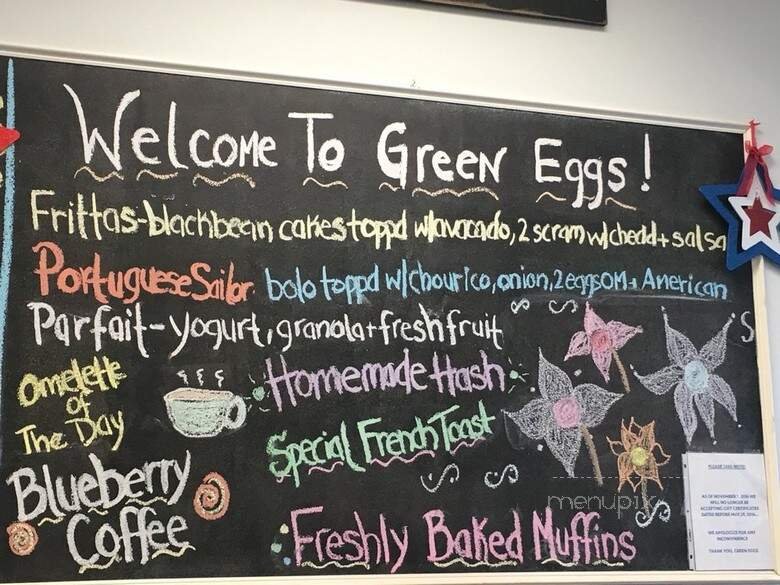 Welcome To Green Eggs!
Frittas-blackbean cakes toppd w/avacado, 2 scram w/chedd + salsa
Portuguese Sailor bolo toppd w/chourico, onion, 2 eggs OM + American
Parfait - yogurt, granola + fresh fruit
Omelette
of
The Day
Homemade Hash
Special French Toast
Blueberry
Coffee
Freshly Baked Muffins
menupix
PLEASE TAKE NOTE!
AS OF NOVEMBER 1, 2016 WE
WILL NO LONGER BE
ACCEPTING GIFT CERTIFICATES
WE APOLOGIZE FOR ANY
INCONVENIENCE
THANK YOU, GREEN EGGS